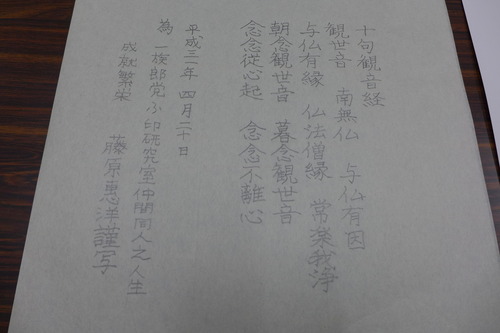 十句観音経
観世音 南無仏 与仏有因
与仏有縁 仏法僧縁 常楽我浄
朝念観世音 暮念観世音
念念従心起 念念不離心
平成三一年 四月二十日
為 一族郎党 小印研究室仲間間人之人生
成就繁栄
藤原惠洋謹写